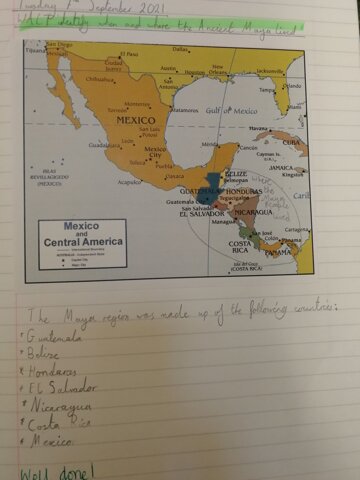 Tuesday 7th September 2021
WALT identify when and where the Ancient Maya lived
San Diego
Tijuana
Ciudad Juarez
El Paso
Dallas
Austin
Houston
New Orleans
Jacksonville
San Antonio
Tampa
Orlando
Miami
Chihuahua
Monterrey
Matamoros
Torreón
Gulf of Mexico
MEXICO
San Luis Potosí
León
Guadalajara
Mexico City
Toluca
Puebla
Mérida
Cancún
Havana
CUBA
Cayman Is.
JAMAICA
Kingston
ISLAS REVILLAGIGEDO
(MEXICO)
Acapulco
Oaxaca
BELIZE
Belmopan
GUATEMALA
HONDURAS
Guatemala City
Tegucigalpa
San Salvador
EL SALVADOR
NICARAGUA
Managua
where the Maya people lived
San José
COSTA RICA
Colón
Panama
PANAMA
Cartagena
Isla del Coco
(COSTA RICA)
Mexico
and
Central America
International Boundary
Capital City
Major City
The Maya region was made up of the following countries:
* Guatemala
* Belize
* Honduras
* El Salvador
* Nicaragua
* Costa Rica
* Mexico.
Well done!